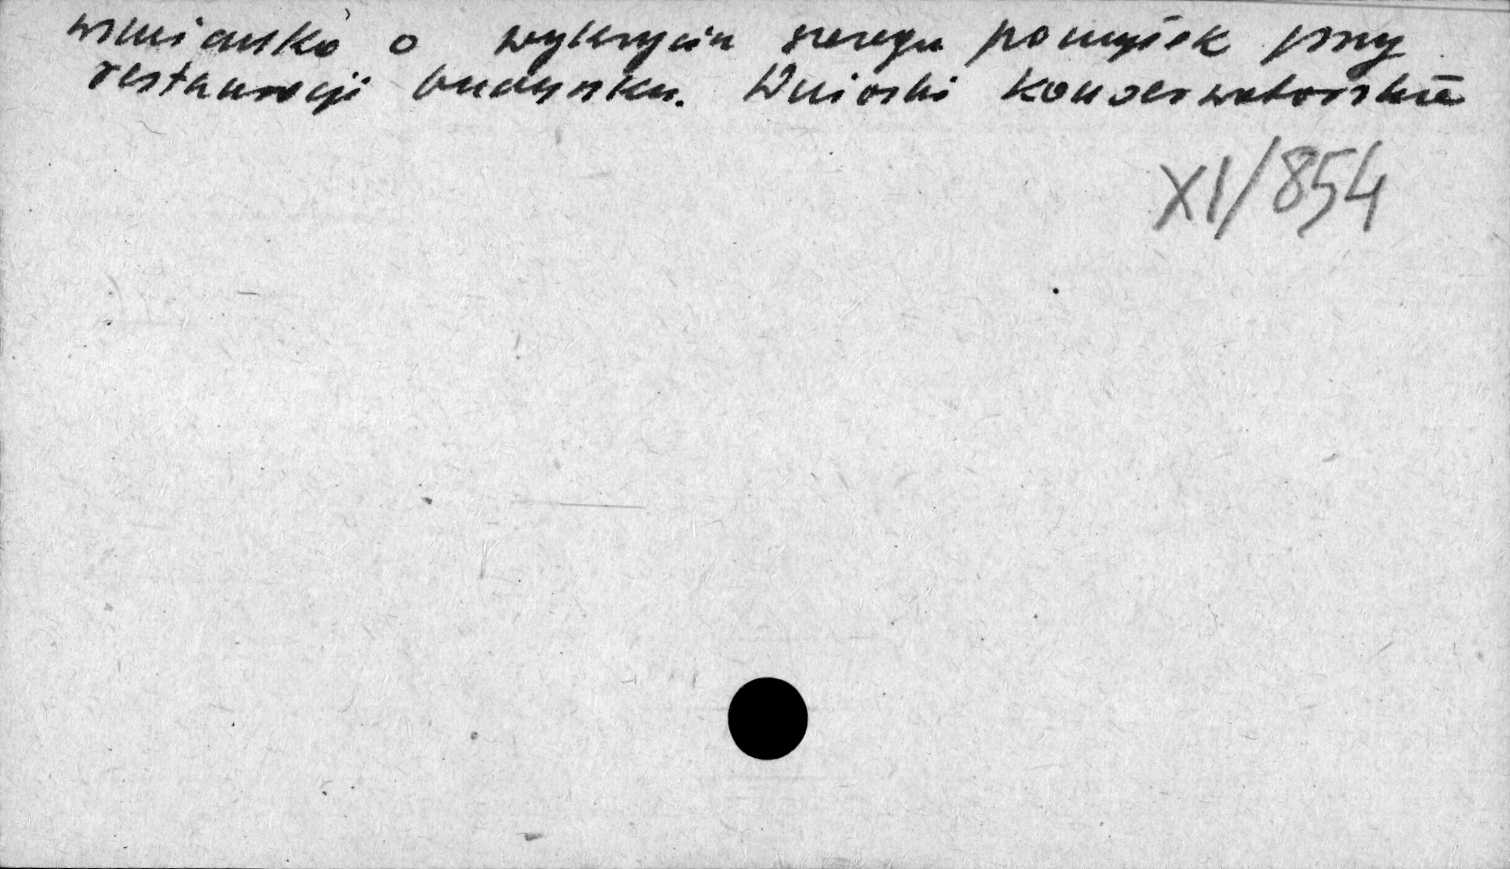 wzmianka o wykryciu szeregu pomyłek przy
restauracji budynku. Wnioski konserwatorskie
XI/854